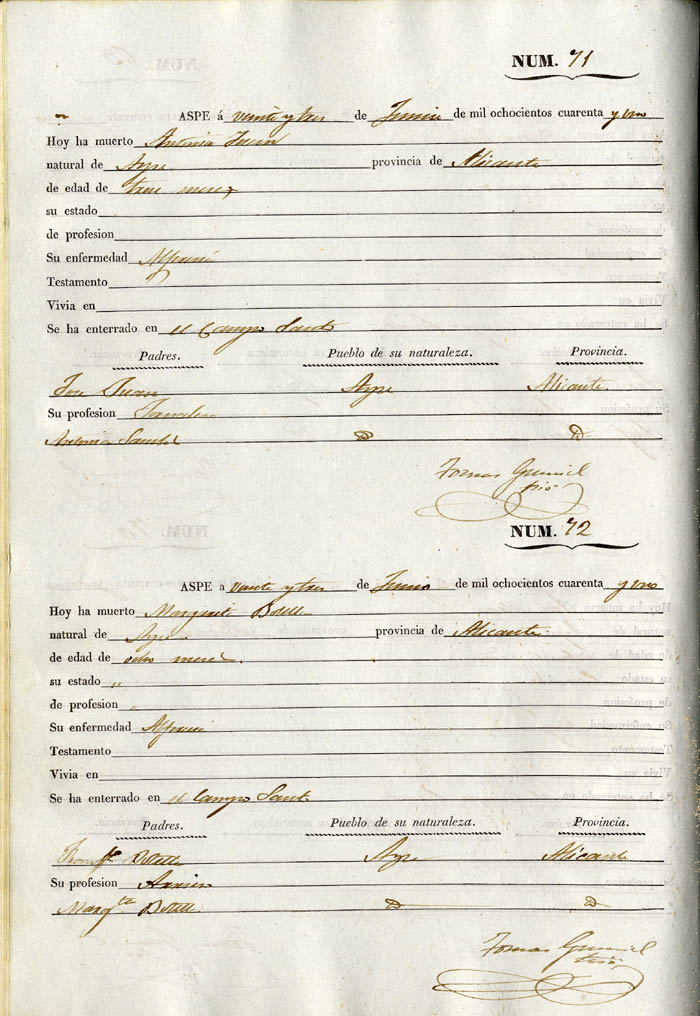 NUM. 71
ASPE á veinte y tres de Junio de mil ochocientos cuarenta y uno
Hoy ha muerto Antonia Juan
natural de Aspe provincia de Alicante
de edad de trece meses
su estado
de profesion
Su enfermedad
Testamento
Vivia en
Se ha enterrado en el Campo Santo
Padres. Pueblo de su naturaleza. Provincia.
Jose Juan Aspe Alicante
Su profesion Jornalero
Antonia D D
Tomas
NUM. 72
ASPE a veinte y tres de Junio de mil ochocientos cuarenta y uno
Hoy ha muerto Margarita Botella
natural de Aspe provincia de Alicante
de edad de ocho meses
su estado "
de profesion
Su enfermedad
Testamento
Vivia en
Se ha enterrado en el Campo Santo
Padres. Pueblo de su naturaleza. Provincia.
Franco Botella Aspe Alicante
Su profesion Arriero
Margta Botella D D
Tomas